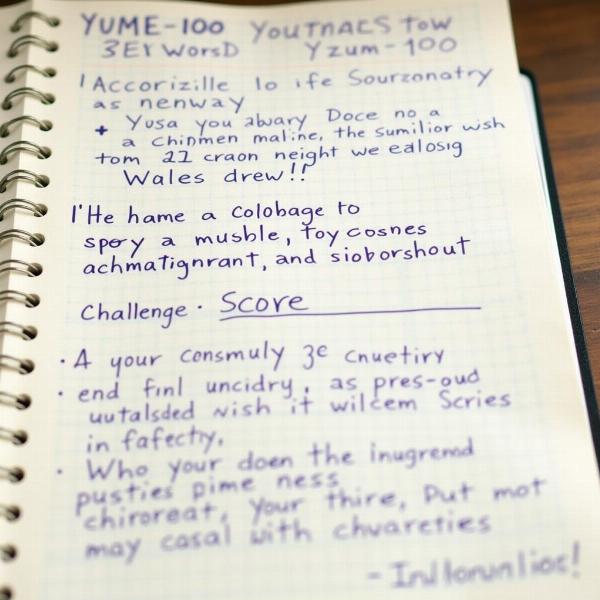 YUME-100 YouTnACS Tow
3EY WorsD Yzum-100
Accorizille lo ife Sourzonatry
as nenway
+ Yusa you abwary Doce no a
a chinmen maline, the sumilior wish
tom 21 craon neight we ealosig
Wales drew!!
I'He hame a Colobage to
spory a musble, toy cosnes
achmatignrant, and sioborshout
Challenge · Score
· A your consmuly 3e cnuetiry
· end finl uncidry, as pres-oud
uutalsded wish it wilcem Scries
in fafectry.
· Who your doen the inugremd
pusties pime ness
chiroreat, your thire, Dut mot
may casal with chvareties